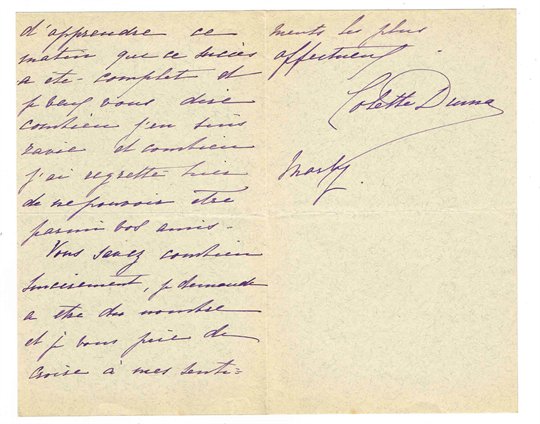 d'apprendre ce
matin que ce succès
a ete complet et
je veux vous dire
combien j'en suis
ravie et combien
j'ai regretté hier
de ne pouvoir être
parmi vos amis -
Vous savez combien
sincèrement, je demande
a etre du nombre
et je vous prie de
croire à mes senti=
ments les plus
affectueux
Colette Duma